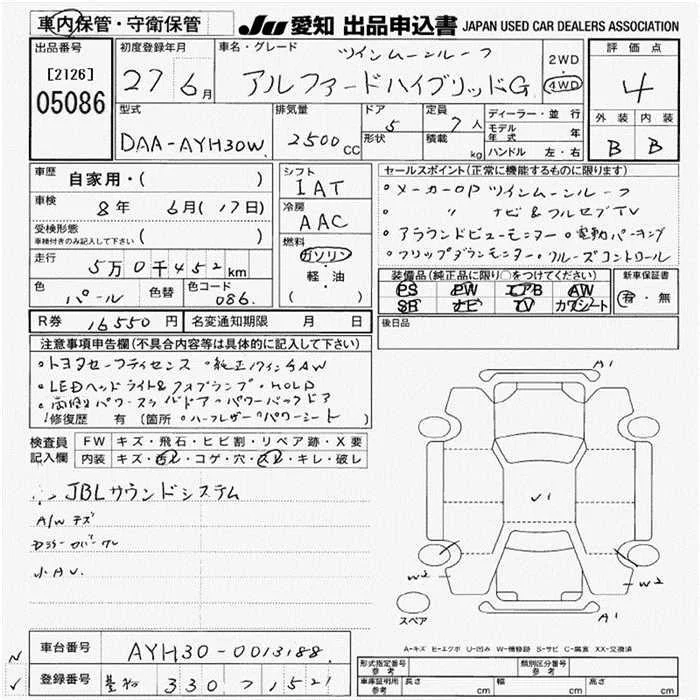 車内保管・守衛保管
JU 愛知 出品申込書 JAPAN USED CAR DEALERS ASSOCIATION
出品番号
[2126]
05086
初度登録年月
27年6月
車名・グレード
ツインムーンルーフ
アルファードハイブリッドG
2WD
・
4WD
評価点
4
外装 内装
B B
型式
DAA-AYH30W
排気量
2500CC
ドア
5
形状
定員
7人
積載
kg
ディーラー・並行
モデル年式 年
ハンドル 左・右
車歴
自家用・( )
車検
8年 6月(17日)
受検形態
車検付きのみ記入して下さい ( )
走行
5万0千452km
色
パール
色替
色コード
086
シフト
IAT
冷房
AAC
燃料
ガソリン
・
軽・油
( )
セールスポイント(正常に機能するものに限ります)
・メーカーOP ツインムーンルーフ
・ 〃 ナビ&フルセグTV
・アラウンドビューモニター ・電動パーキング
・フリップダウンモニター ・クルーズコントロール
装備品(純正品に限り○をつけてください)
PS PW エアB AW
SR ナビ TV カワシート
新車保証書
有・無
後日品
R券 16550円
名変通知期限 月 日
注意事項申告欄(不具合内容等は具体的に記入して下さい)
・トヨタセーフティセンス ・純正17インチAW
・LEDヘッドライト&フォグランプ ・HOLD
・両側パワースライドドア ・パワーバックドア
修復歴 有(箇所 ・ハーフレザー ・パワーシート )
検査員記入欄
FW キズ・飛石・ヒビ割・リペア跡・X要
内装 キズ・汚レ・コゲ・穴・スレ・キレ・破レ
JBLサウンドシステム
A/W キズ
小A.U.
A1
U1
W2
W2
A1
スペア
A-キズ E-エクボ U-凹み W-補修跡 S-サビ C-腐食 XX-交換済
車台番号 AYH30-0013188
登録番号 豊橋 330 つ 1521
形式指定番号 参考
類別区分番号 参考
車庫証明用 参考 長さ cm 幅 cm 高さ cm